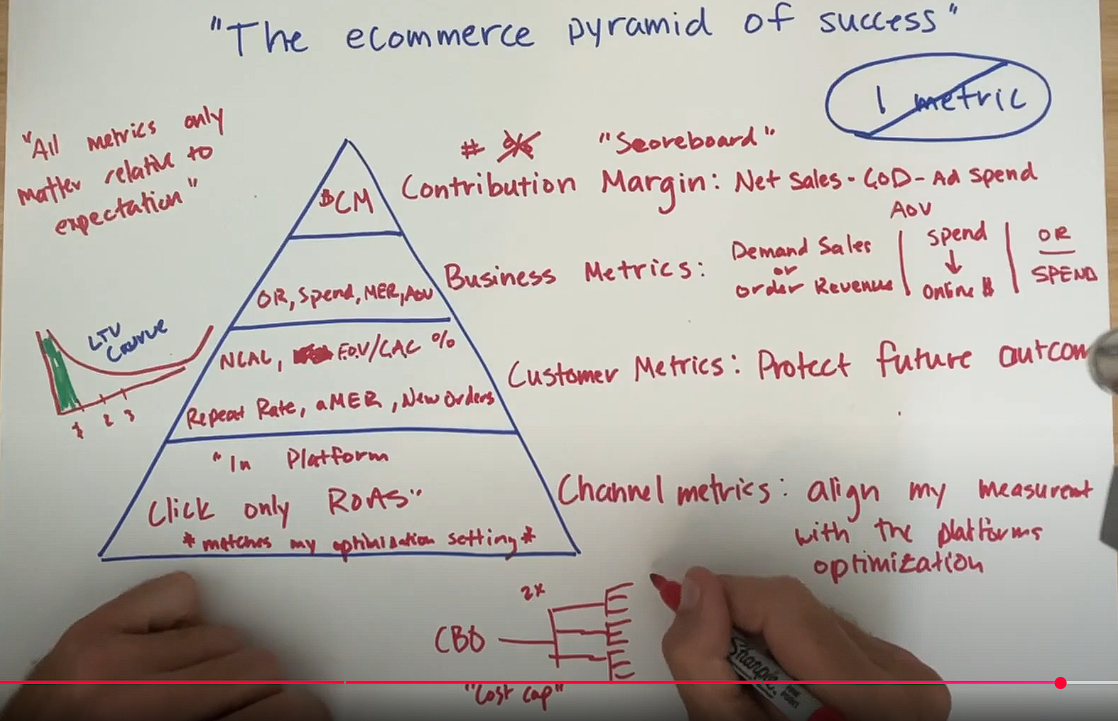 "The ecommerce pyramid of success"
1 metric
"All metrics only
matter relative to
expectation"
# % "Scoreboard"
$CM
Contribution Margin: Net Sales - COD - Ad Spend
AOV
OR, Spend, MER, AOV
Business Metrics:
Demand Sales
or
Order Revenue
Spend
↓
Online $
OR
SPEND
LTV
Curve
1 2 3
NCAC, EOV/CAC %
Repeat Rate, aMER, New Orders
Customer Metrics: Protect future outcom
"In Platform
Click only ROAS"
*matches my optimization setting*
Channel metrics: align my measurement
with the platforms
optimization
2x
CBO
"Cost cap"
Sharpie